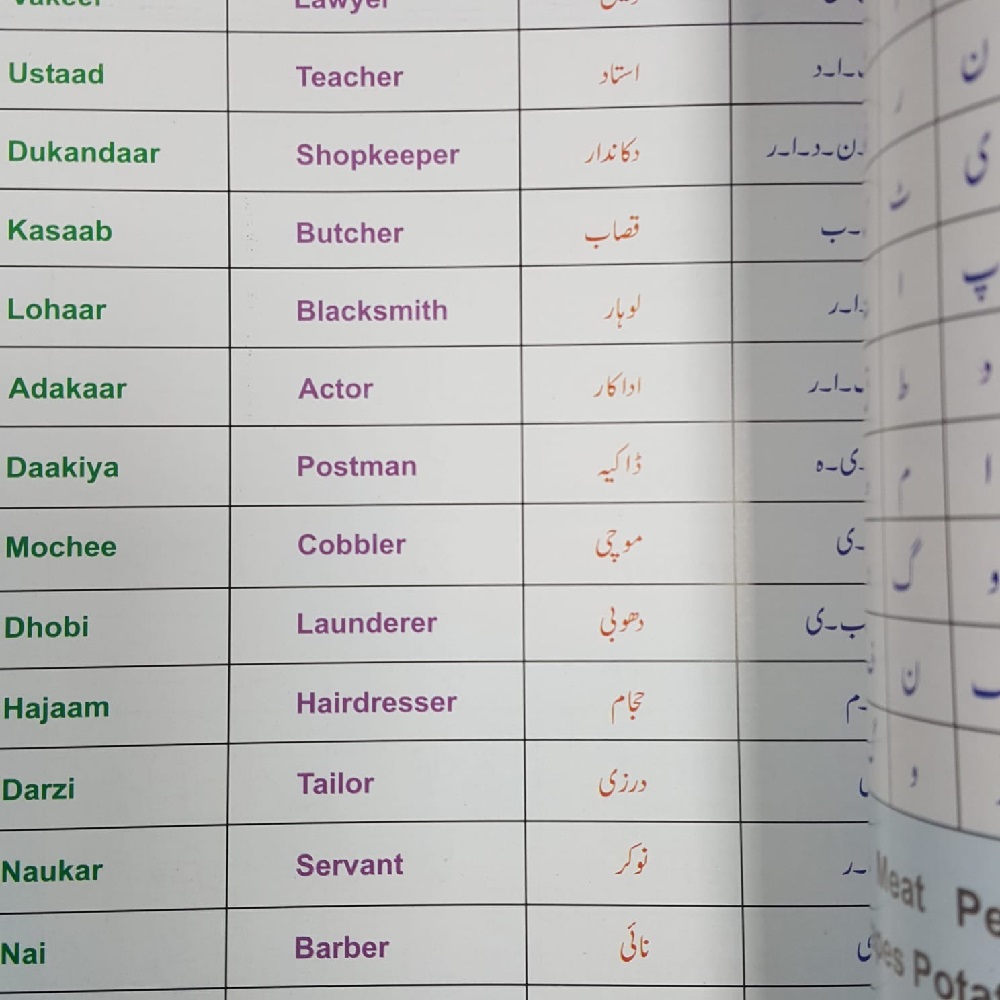 Lawyer
Ustaad Teacher استاد
Dukandaar Shopkeeper دکاندار ن۔د۔ا۔ر
Kasaab Butcher قصاب ۔ب
Lohaar Blacksmith لوہار ۔ا۔ر
Adakaar Actor اداکار ۔ا۔ر
Daakiya Postman ڈاکیہ ۔ی۔ہ
Mochee Cobbler موچی ۔ی
Dhobi Launderer دھوبی ب۔ی
Hajaam Hairdresser حجام ۔م
Darzi Tailor درزی
Naukar Servant نوکر ۔ر
Nai Barber نائی ی
ن
ی
ٹ
پ
ا
د
ط
ا
م
و
گ
ن
و
Meat